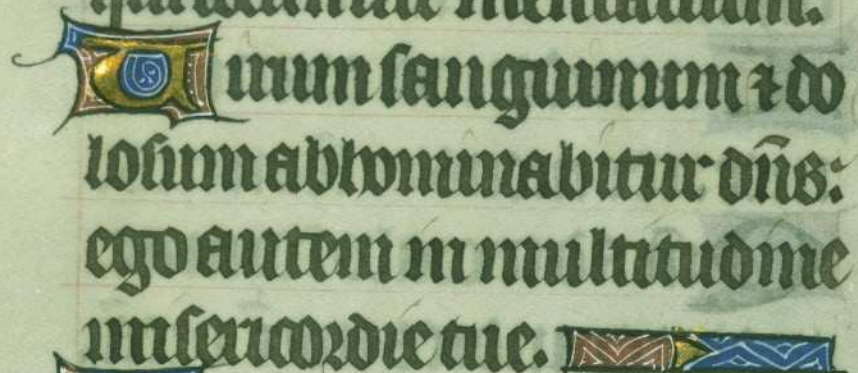 mendacium.
Uirum sanguinum ⁊ do
losum abhominabitur dn̄s:
ego autem in multitudine
misericordie tue.